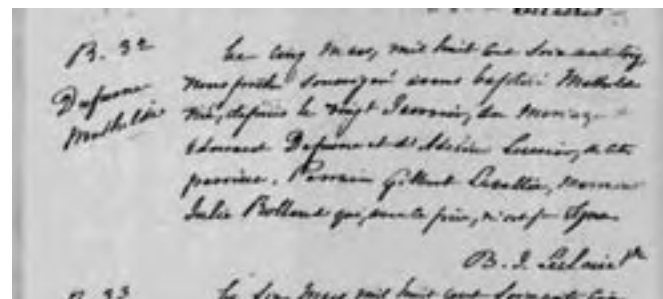 B. 32
Dufresne
Mathilde
Le cinq Mars, mil huit cent soixante cinq,
Nous prêtre soussigné avons baptisé Mathilde
née, depuis le vingt Janvier, du Mariage
Edouard Dufresne et de Adeline de cette
paroisse. Parrain Gilbert Marraine
Julie qui, avec le père, n'ont pu signer
B. J. Leclaire Ptre
B. 33
Le six Mars mil huit cent soixante cinq